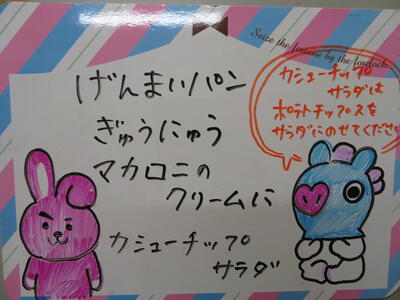 Seize the fortune by the forelock.
げんまいパン
ぎゅうにゅう
マカロニの
クリームに
カシューチップ
サラダ
カシューチップ
サラダは
ポテトチップスを
サラダにのせてください